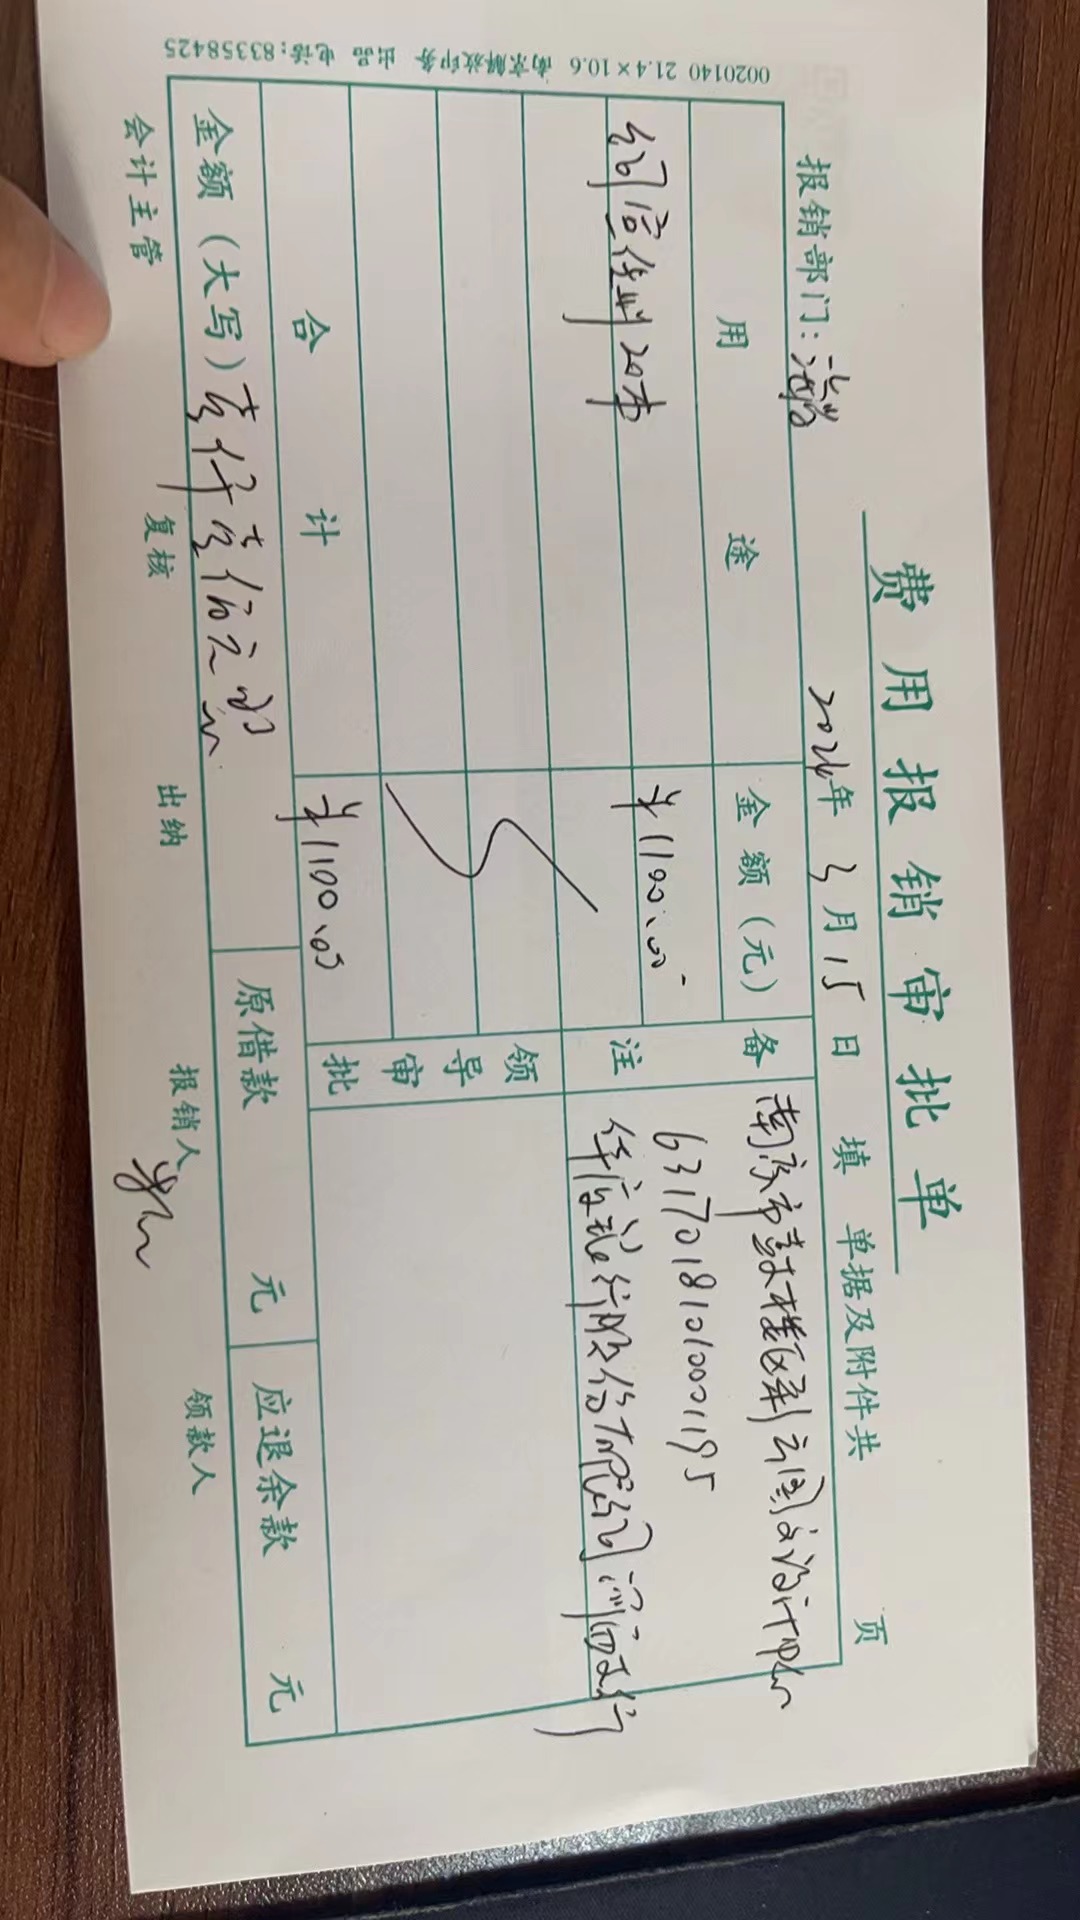 费用报销审批单
报销部门:
2024年 3月15日 填 单据及附件共 页
用途 金额(元) 备注
20本 ¥1100.00
南京市鼓楼区
63170181010001195
华夏银行股份有限公司
合计 ¥1100.00
领导审批
金额(大写)壹仟壹佰元整
原借款 元 应退余款 元
会计主管 复核 出纳 报销人 领款人
0020140 21.4×10.6 南京解放印务 出品 电话:83358425